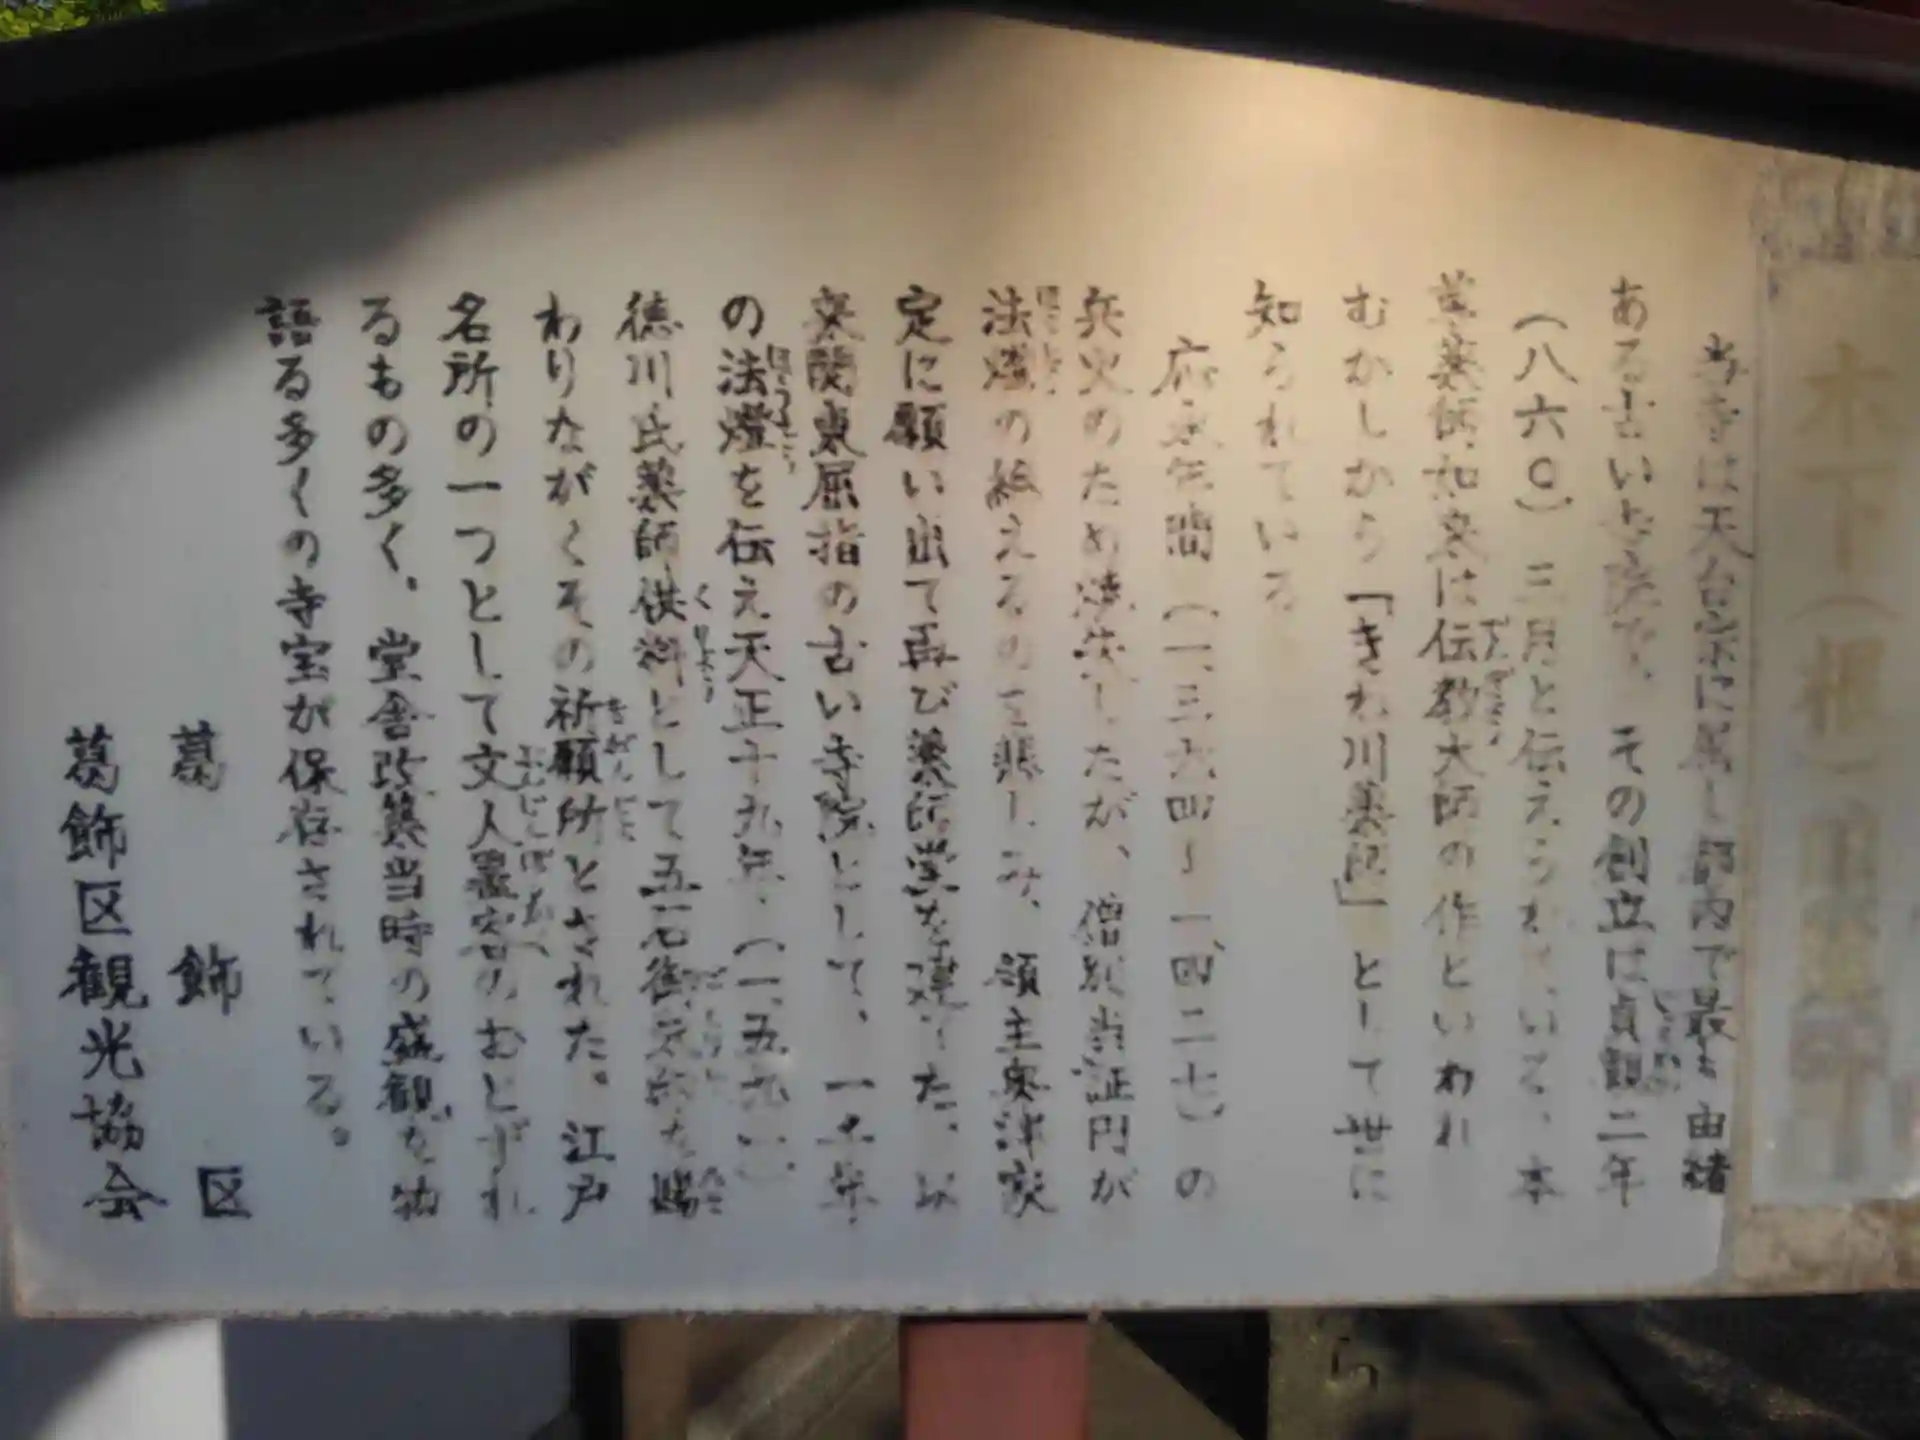 木下(根)川薬師
当寺は天台宗に属し都内で最も由緒
ある古い寺院で、その創立は貞観二年
(八六〇)三月と伝えられている、本
堂薬師如来は伝教大師の作といわれ
むかしから「きね川薬師」として世に
知られている
応永年間(一、三九四〜一、四二七)の
兵火のため焼失したが、僧別当証円が
法燈の絶えるのを悲しみ、領主奥津家
定に願い出て再び薬師堂を建てた、以
来関東屈指の古い寺院として、一千年
の法燈を伝え天正十九年、(一、五九一)
徳川氏薬師供料として五石御朱印を賜
わりながくその祈願所とされた。江戸
名所の一つとして文人墨客のおとずれ
るもの多く、堂舎改築当時の盛観を物
語る多くの寺宝が保存されている。
葛飾区
葛飾区観光協会